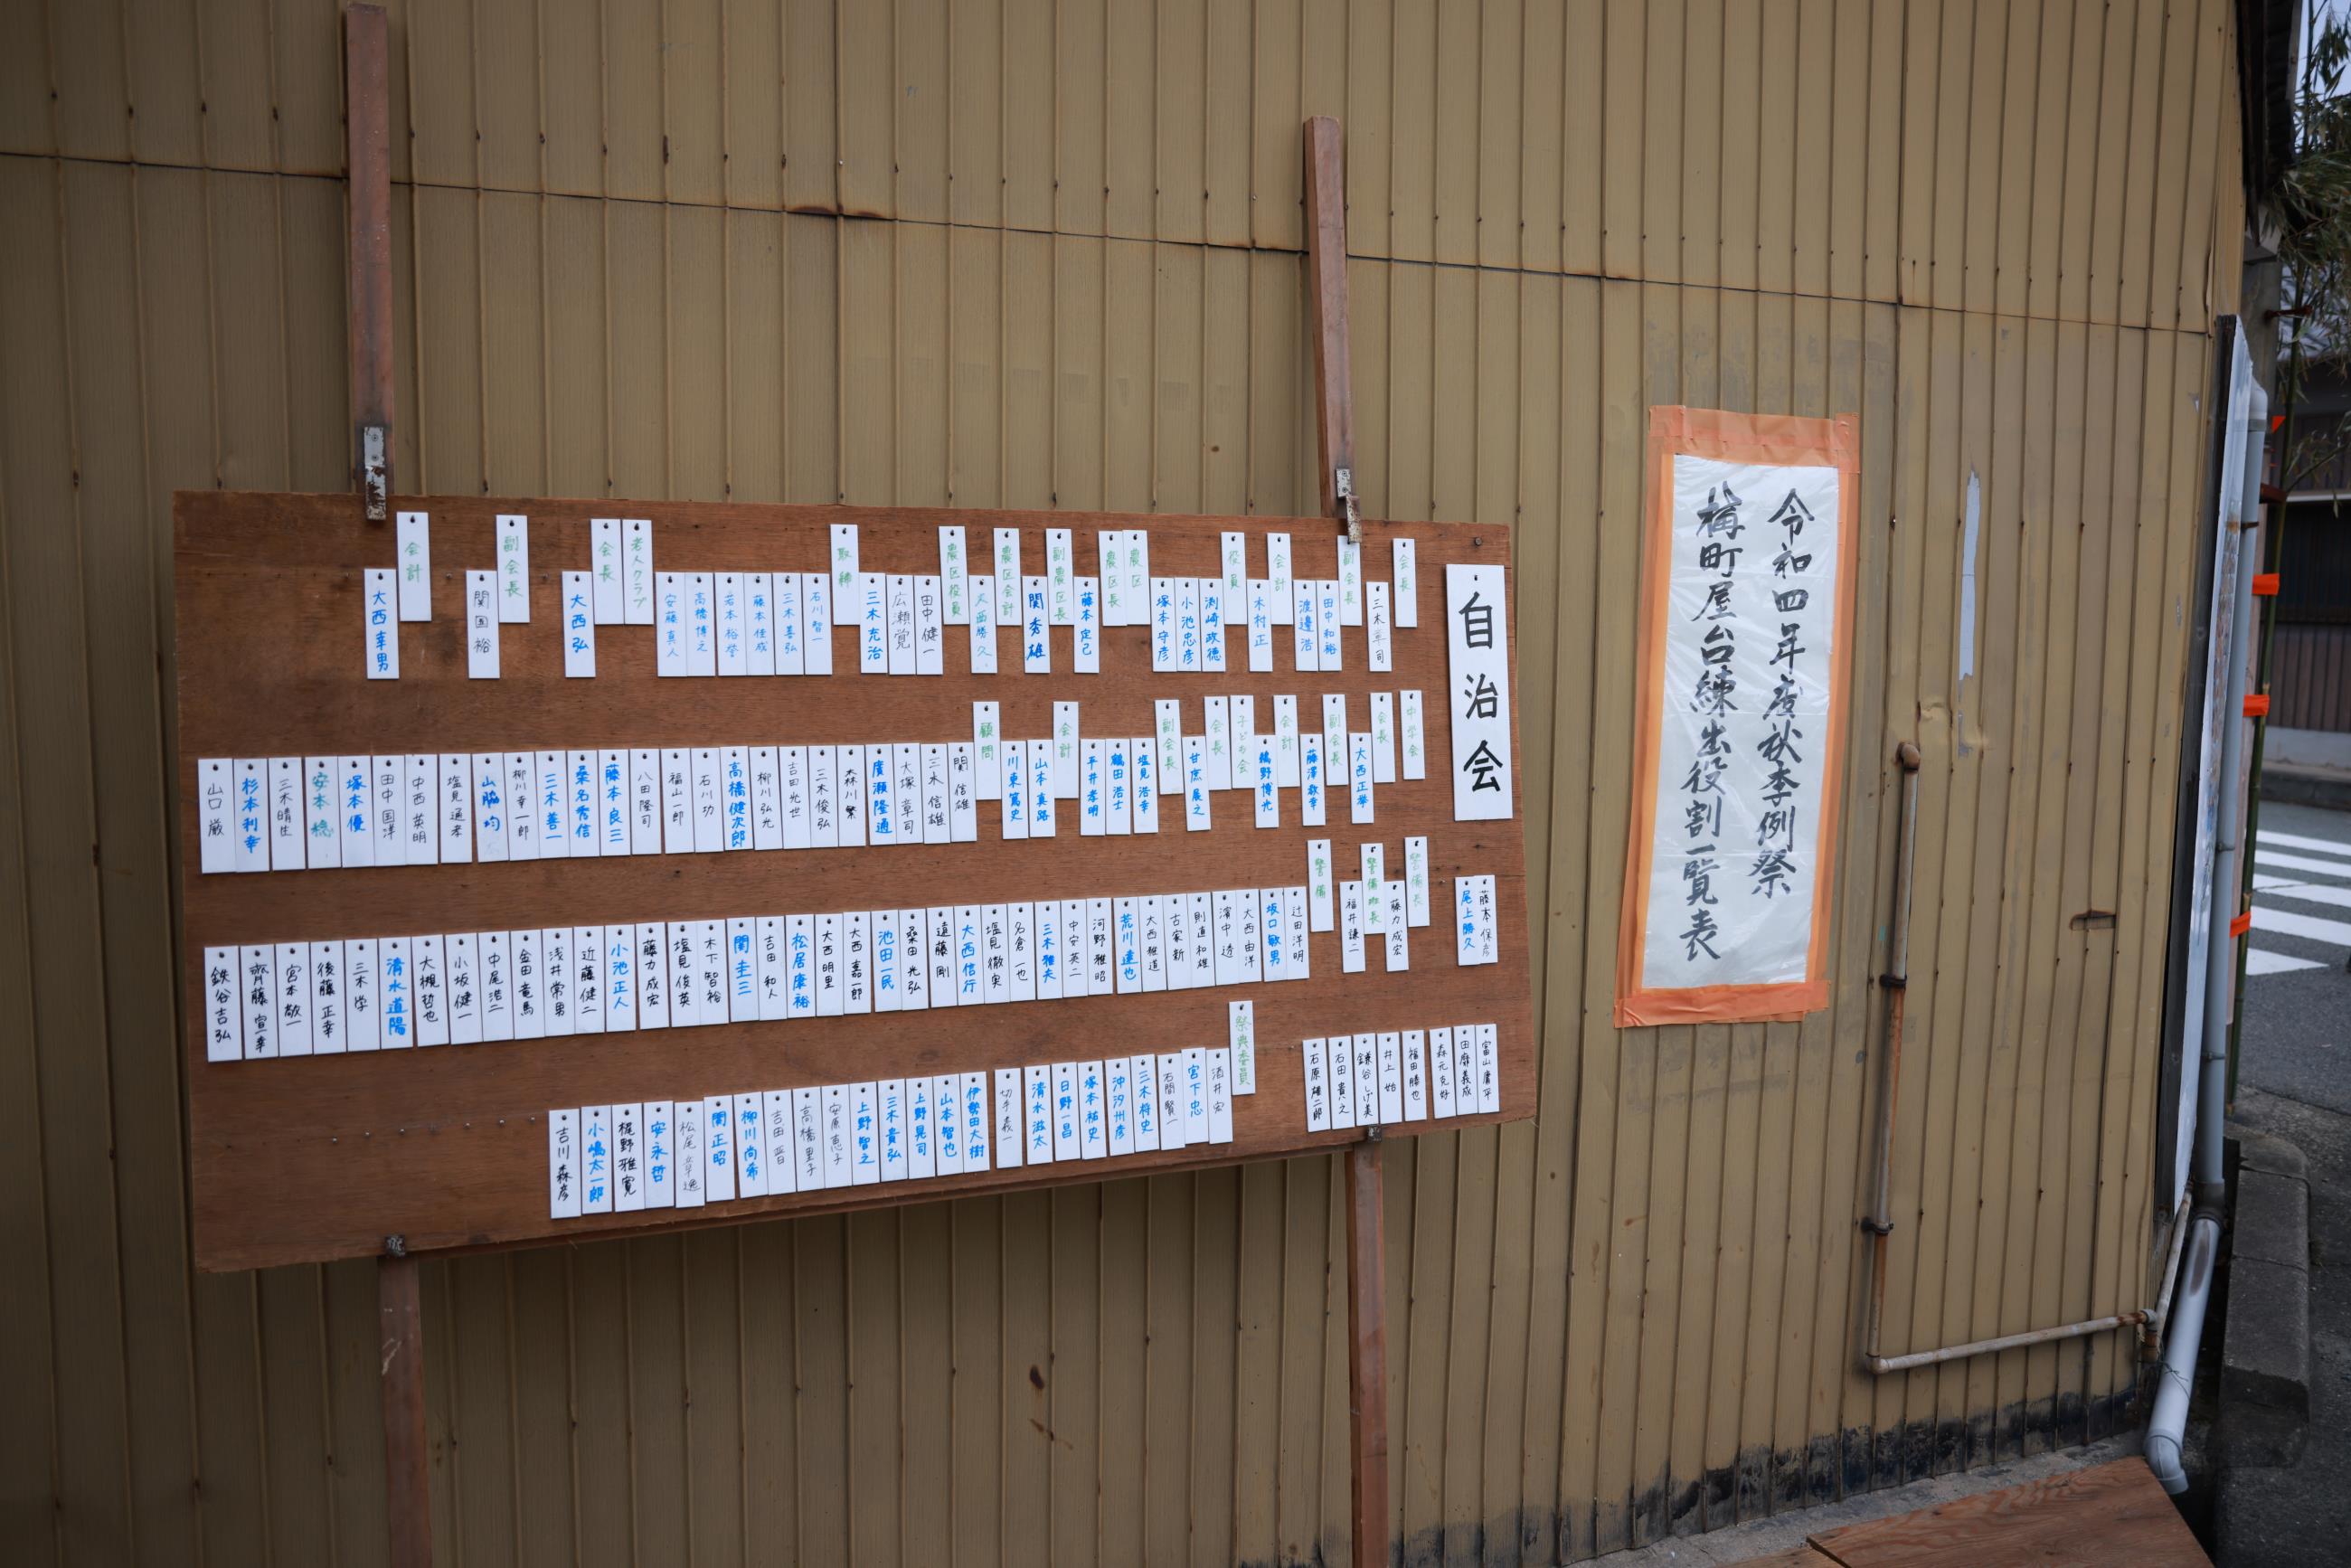 令和四年度秋季例祭
構町屋台練出役割一覧表
自治会
会長
三木幸司
副会長
田中和裕
渡邊浩
会計
木村正
役員
渕崎政徳
小池忠彦
塚本守彦
農区
農区長
藤本定己
副農区長
関秀雄
農区会計
大西勝久
農区役員
田中健一
広瀬覚
三木充治
取締
石川智一
三木善弘
藤本佳成
岩本裕誉
高橋博之
安藤真人
老人クラブ
会長
大西弘
副会長
関国裕
会計
大西幸男
中学会
会長
大西正挙
副会長
藤澤敦幸
会計
鵜野博光
子ども会
会長
甘庶展之
副会長
塩見浩幸
鶴田浩士
平井孝明
会計
山本真路
川東篤史
顧問
関信雄
三木信雄
大塚章司
廣瀬隆通
森川繁
三木俊弘
吉田光世
柳川弘光
高橋健次郎
石川功
福山一郎
八田隆司
藤本良三
桑名秀信
三木善一
柳川幸一郎
山脇均
塩見通孝
中西英明
田中国洋
塚本優
安本穂
三木晴生
杉本利幸
山口厳
藤本保彦
尾上勝久
警備長
藤力成宏
警備班長
福井謙二
警備
辻田洋明
坂口敏男
大西由洋
濱中透
則直和雄
古家新
大西雅道
荒川達也
河野雅昭
中安英二
三木雅夫
名倉一也
塩見徹実
大西信行
遠藤剛
桑田光弘
池田一民
大西嘉一郎
大西明里
松居康裕
吉田和人
関圭三
木下智裕
塩見俊英
藤力成宏
小池正人
近藤健二
浅井常男
金田竜馬
中尾浩二
小坂健一
大槻哲也
清水道陽
三木学
後藤正幸
宮本敬一
齊藤宣幸
鉄谷吉弘
富山庸平
田靡義成
森元克好
福田勝也
井上始
鎌谷しげ美
石田貴之
石原雄二郎
祭典委員
酒井宏
宮下忠
石間賢一
三木将史
沖汐州彦
塚本祐史
日野一昌
清水滋太
切手義一
伊勢田大樹
山本智也
上野晃司
三木貴弘
上野智之
安原恵子
高橋里子
吉田晋
柳川尚希
関正昭
松尾章逸
安永哲
梶野雅寛
小嶋太一郎
吉川森彦